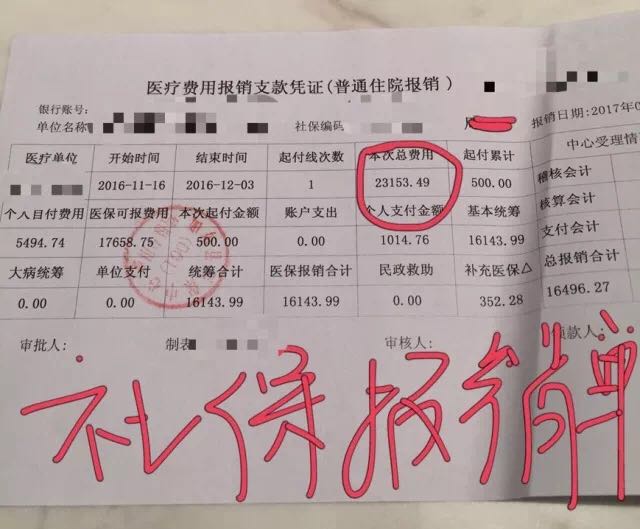 医疗费用报销支款凭证(普通住院报销)
银行账号:
单位名称 社保编码 报销日期:2017年0
医疗单位 开始时间 结束时间 起付线次数 本次总费用 起付累计 中心受理情
2016-11-16 2016-12-03 1 23153.49 500.00 稽核会计
个人自付费用 医保可报费用 本次起付金额 账户支出 个人支付金额 基本统筹 核算会计
5494.74 17658.75 500.00 0.00 1014.76 16143.99 支付会计
大病统筹 单位支付 统筹合计 医保报销合计 民政救助 补充医保△ 总报销合计
0.00 0.00 16143.99 16143.99 0.00 352.28 16496.27
审批人: 制表 审核人: 领款人:
社保报销单